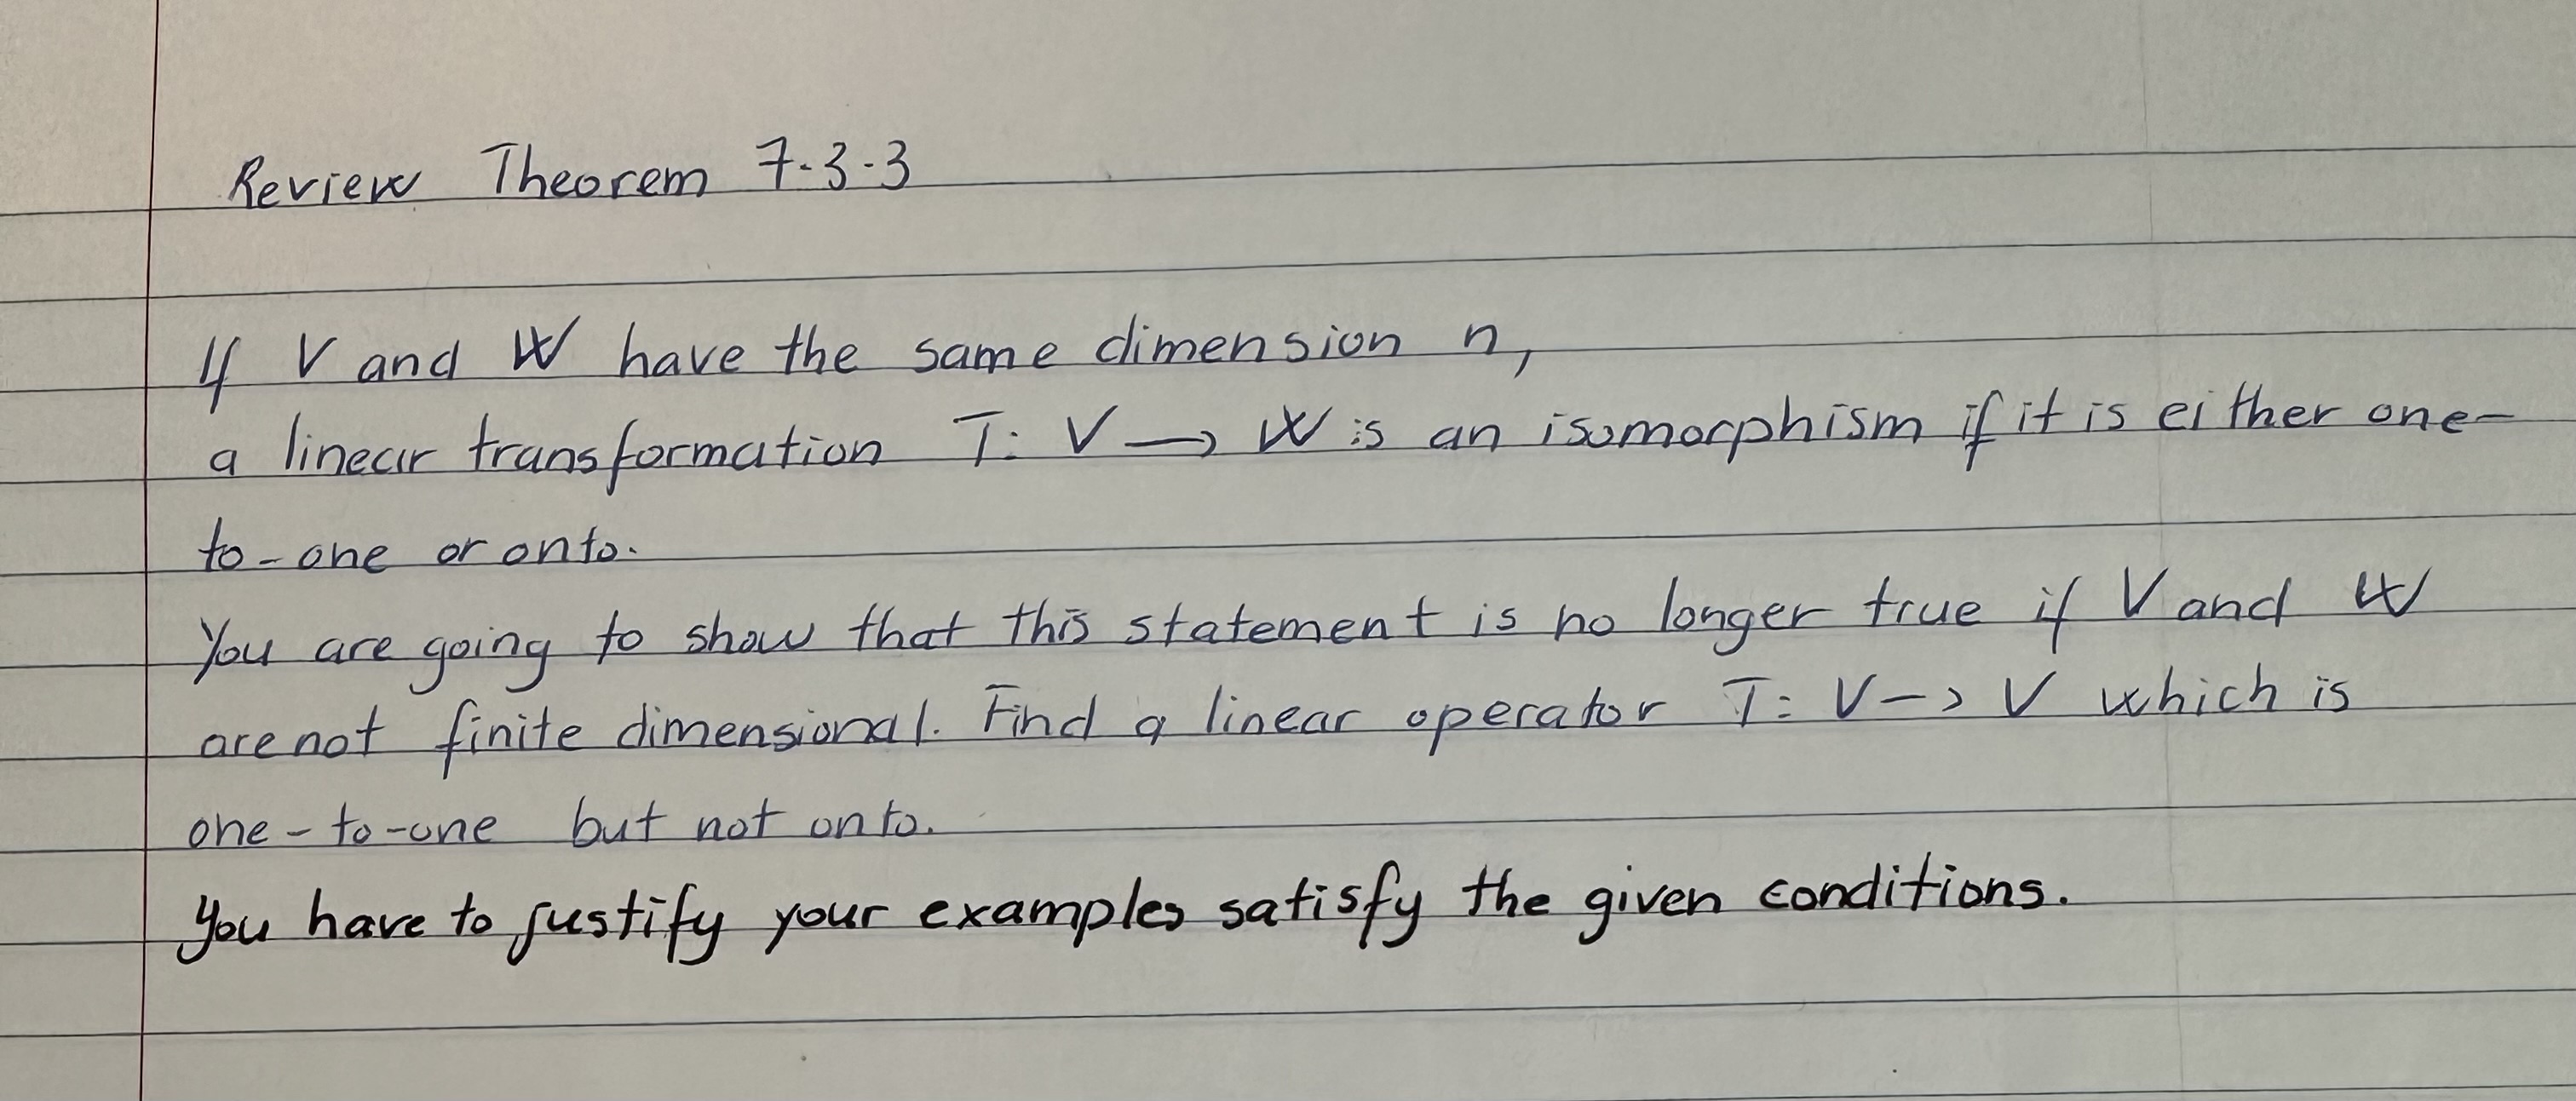 Review Theorem 7.3.3
If V and W have the same dimension n,
a linear transformation T: V → W is an isomorphism if it is either one-
to-one or onto.
You are going to show that this statement is no longer true if V and W
are not finite dimensional. Find a linear operator T: V → V which is
one-to-one but not onto.
You have to justify your examples satisfy the given conditions.